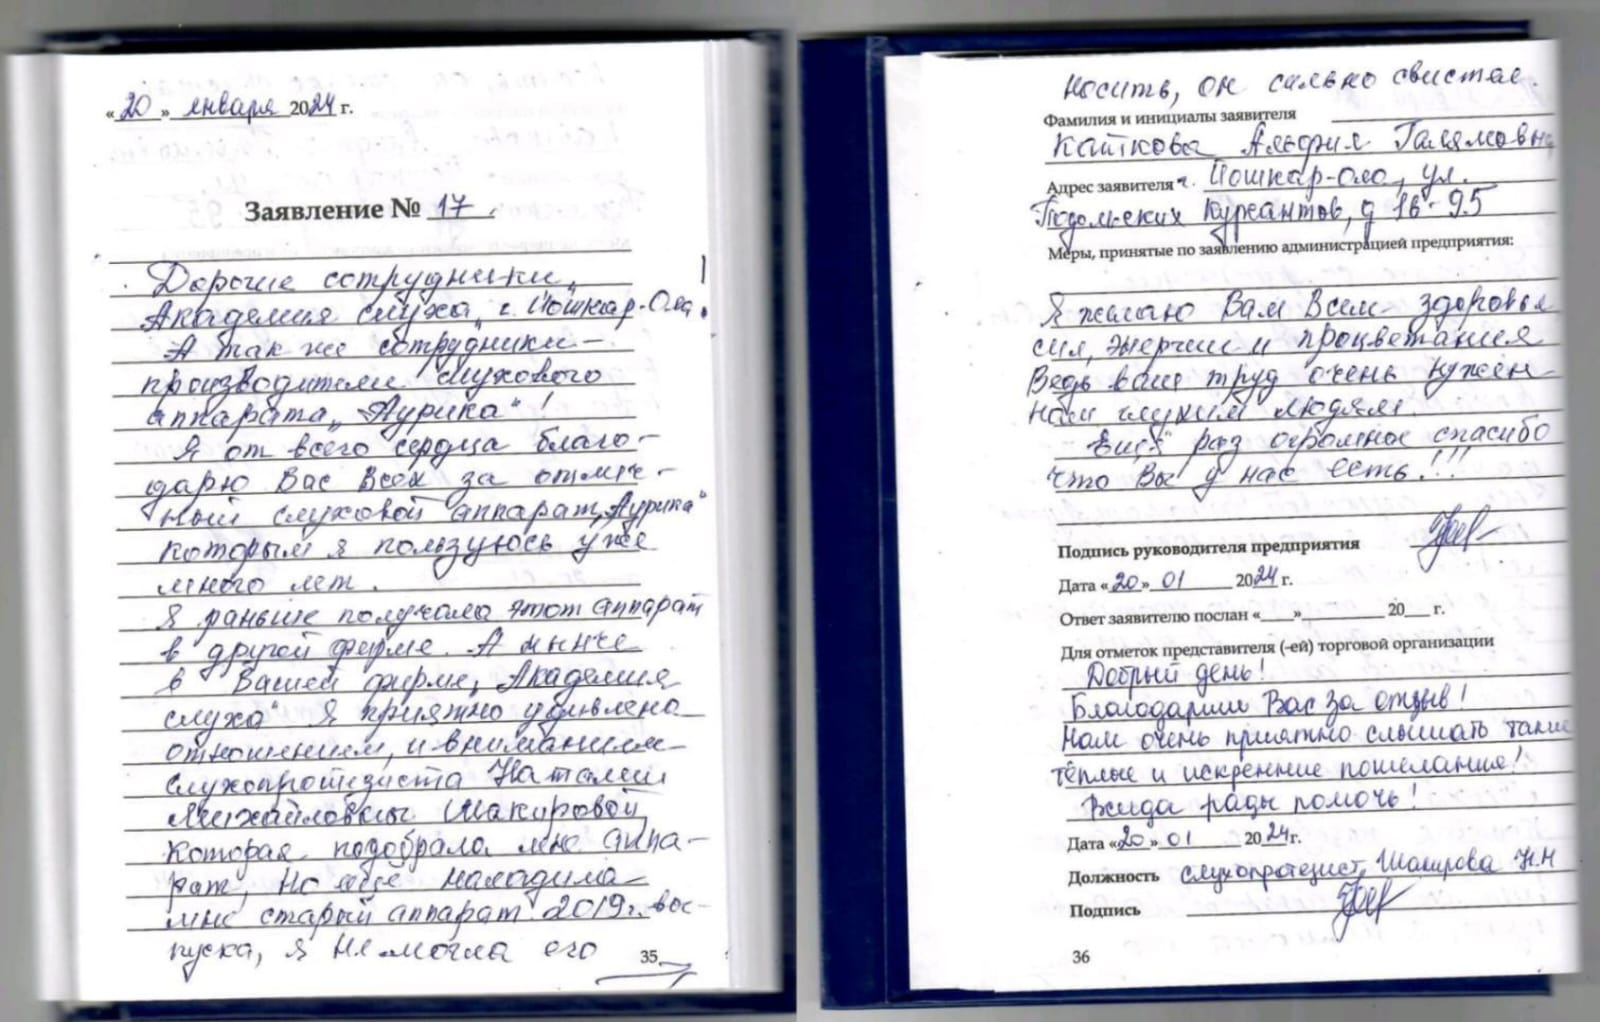 «20» января 2024 г.
Заявление № 17
Дорогие сотрудники „
Академия слуха" г. Йошкар-Ола!
А так же сотрудники-
производители слухового
аппарата „Аурика"!
Я от всего сердца благо-
дарю Вас Всех за отлич-
ный слуховой аппарат „Аурика"
которым я пользуюсь уже
много лет.
Я раньше получала этот аппарат
в другой фирме. А нынче
в Вашей фирме „Академия
слуха" Я приятно удивлена
отношением, и вниманием
слухопротизиста Наталии
Михайловны Шакировой,
которая подобрала мне аппа-
рат, но еще наладила
мне старый аппарат 2019г. вы-
пуска, я не могла его
35
носить, он сильно свистел.
Фамилия и инициалы заявителя
Кайкова Альфия Галямовна
Адрес заявителя г. Йошкар-Ола, ул.
Подольских Курсантов, д 18-95
Меры, принятые по заявлению администрацией предприятия:
Я желаю Вам Всем здоровья
сил, энергии и процветания
Ведь ваш труд очень нужен
нам глухим людям.
Ещё раз огромное спасибо
что Вы у нас есть!!!
Подпись руководителя предприятия
Дата «20» 01 2024 г.
Ответ заявителю послан «___»________ 20__ г.
Для отметок представителя (-ей) торговой организации
Добрый день!
Благодарим Вас за отзыв!
Нам очень приятно слышать такие
тёплые и искренние пожелания!
Всегда рады помочь!
Дата «20» 01 2024г.
Должность слухопротезист, Шакирова Н.М
Подпись
36